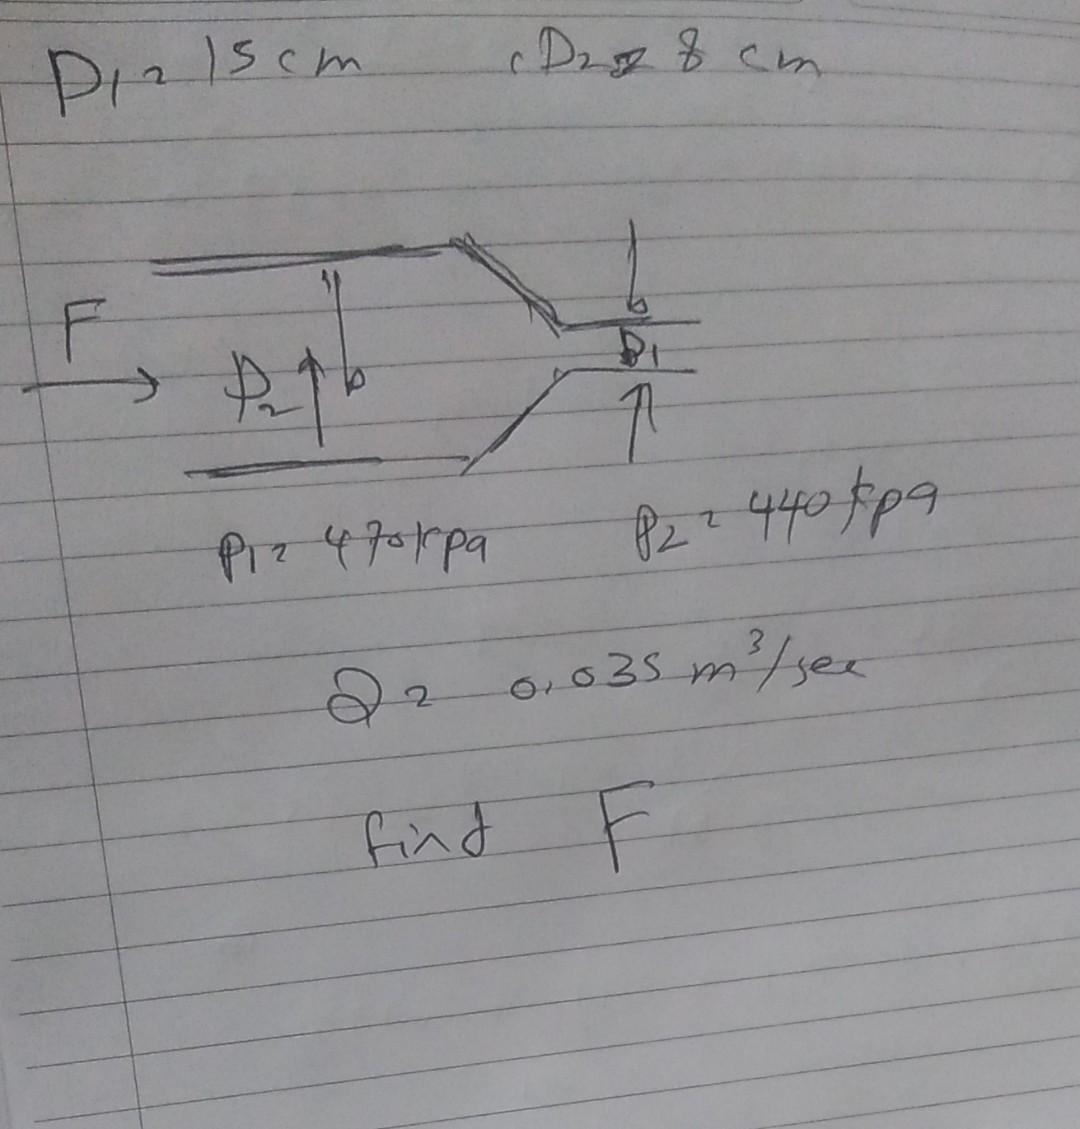 D1 = 15 cm , D2 = 8 cm
F
D2
D1
P1 = 470 kpa P2 = 440 kpa
Q = 0.035 m³/sec
find F